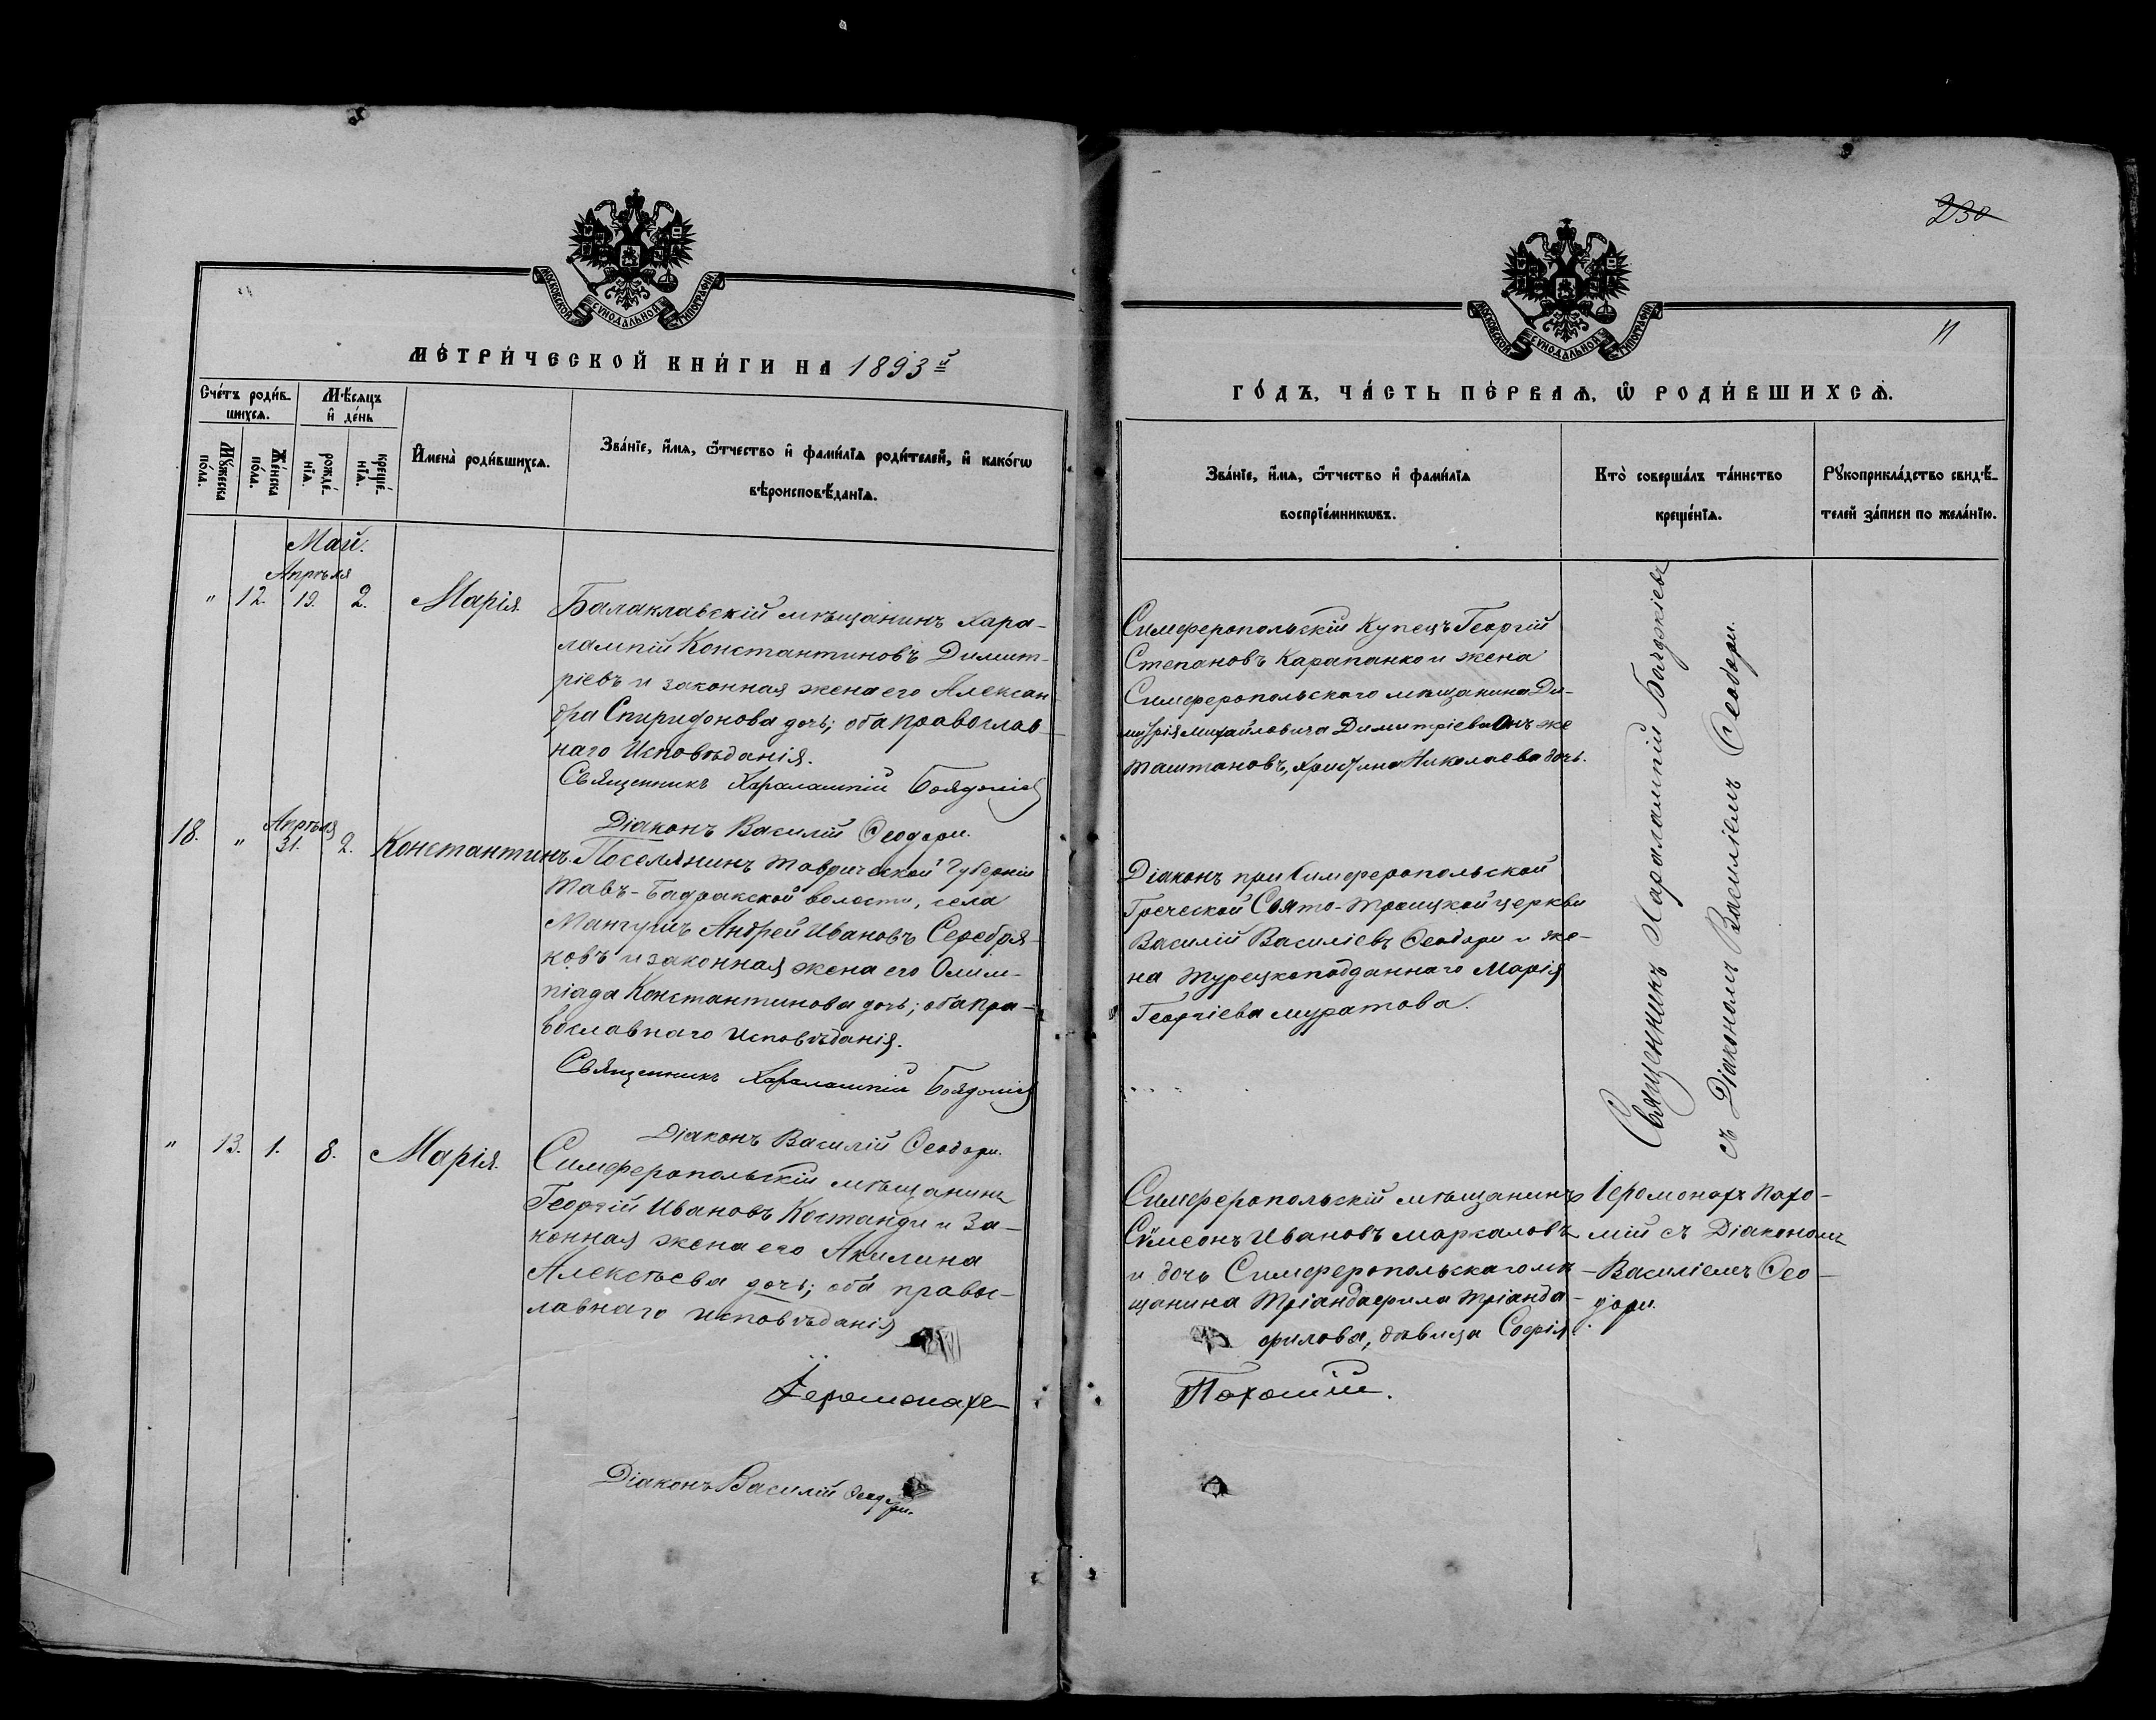 230
МОСКОВСКОЙ СУНОДАЛЬНОЙ ТИПОГРАФІИ
МЕТРИ́ЧЕСКОЙ КНИ́ГИ НА 1893й
Сче́тъ роди́в-
шихся.
Мѣ́сяцъ
и҆ де́нь
Мꙋ́жеска
по́ла.
Же́нска
по́ла.
рожде́-
нїѧ.
креще́-
нїѧ.
И҆мена̀ роди́вшихсѧ.
Зва́нїе, и҆́мѧ, ѻ҆́тчество и҆ фами́лїѧ роди́телей, и҆ како́гѡ
вѣроисповѣ́данїѧ.
Май.
Апрѣля
" 12. 19. 2. Марія.
Балаклавскій мѣщанинъ Хара-
лампій Константиновъ Димит-
ріевъ и законная жена его Алексан-
дра Спиридонова дочь; оба православ-
наго Исповѣданія.
Священникъ Харалампій
Діаконъ Василій Ѳеодори.
18. " Апрѣля 31. 2. Константинъ.
Поселянинъ Таврической Губерніи
Тавъ-Бадракской волости, села
Мангушъ Андрей Ивановъ Серебря-
ковъ и законная жена его Олим-
піада Константинова дочь; оба пра-
вославнаго Исповѣданія.
Священникъ Харалампій
Діаконъ Василій Ѳеодори.
" 13. 1. 8. Марія.
Симферопольскій мѣщанинъ
Георгій Ивановъ Костанди и за-
конная жена его Акилина
Алексѣева дочь; оба право-
славнаго исповѣданія
Іеромонахъ
Діаконъ Василій Ѳеодори.
МОСКОВСКОЙ СУНОДАЛЬНОЙ ТИПОГРАФІИ
11
ГО́ДЪ, ЧА́СТЬ ПЕ́РВАѦ, Ѡ҆ РОДИ́ВШИХСѦ.
Зва́нїе, и҆́мѧ, ѻ҆́тчество и҆ фами́лїѧ
воспрїе́мникѡвъ.
Кто̀ соверша́лъ та́инство
креще́нїѧ.
Рꙋкоприкла́дство свидѣ́-
телей за́писи по жела́нїю.
Симферопольскій Купецъ Георгій
Степановъ Карапанко и жена
Симферопольскаго мѣщанина Ди-
митрія Михайловича Димитріева Онъ же
Таштановъ, Христина Николаева дочь.
Діаконъ при Симферопольской
Греческой Свято-Троицкой церкви
Василій Василіевъ Ѳеодори и же-
на Турецкоподданнаго Марія
Георгіева Муратова.
Священникъ Харалампій
съ Діакономъ Василіемъ Ѳеодори.
Симферопольскій мѣщанинъ
Сѵмеонъ Ивановъ Маркаловъ
и дочь Симферопольскаго мѣ-
щанина Тріандафила Тріанда-
филова, дѣвица Софія.
Іеромонахъ Пахо-
мій съ Діакономъ
Василіемъ Ѳео-
дори.
Пахомій.